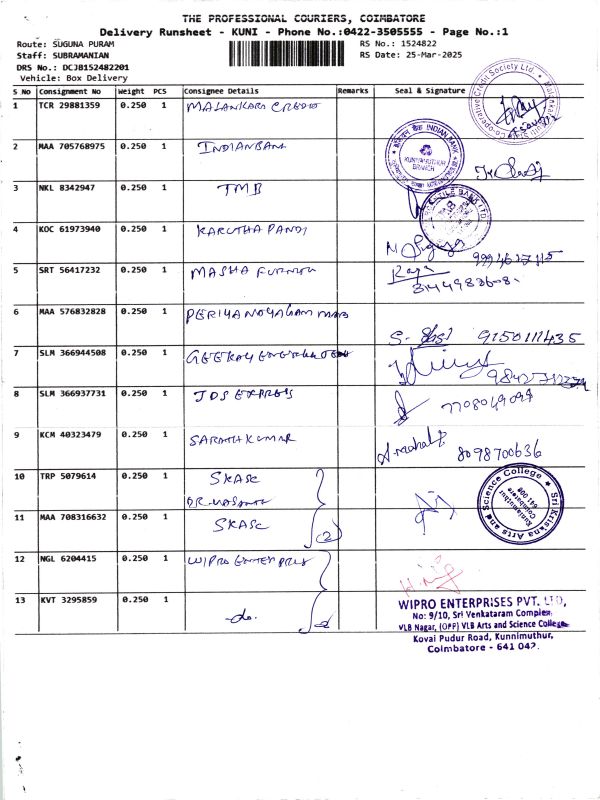 THE PROFESSIONAL COURIERS, COIMBATORE
Delivery Runsheet - KUNI - Phone No.:0422-3505555 - Page No.:1
Route: SUGUNA PURAM RS No.: 1524822
Staff: SUBRAMANIAN RS Date: 25-Mar-2025
DRS No.: DCJB152482201
Vehicle: Box Delivery
S No Consignment No Weight PCS Consignee Details Remarks Seal & Signature
1 TCR 29881359 0.250 1 MALANKARA CREDIT
2 MAA 705768975 0.250 1 INDIANBANK
INDIAN BANK
KUNIYAMUTHUR
BRANCH
3 NKL 8342947 0.250 1 TMB
4 KOC 61973940 0.250 1 KARUTHA PANDI
5 SRT 56417232 0.250 1 MASHA FURNITU
Raja
6 MAA 576832828 0.250 1 PERIYANAYAGAM
9150111435
7 SLM 366944508 0.250 1 GEEKAY
8 SLM 366937731 0.250 1 JDS EXPRESS
7708049094
9 KCM 40323479 0.250 1 SARATH KUMAR
8098700636
10 TRP 5079614 0.250 1 SKASC
DR. VASANTH
11 MAA 708316632 0.250 1 SKASC
(2)
Sri Krishna Arts and Science College
Kuniamuthur
Coimbatore
641 008
12 NGL 6204415 0.250 1 WIPRO ENTERPRIS
13 KVT 3295859 0.250 1 -do.
2
WIPRO ENTERPRISES PVT. LTD,
No: 9/10, Sri Venkataram Complex,
VLB Nagar, (OPP) VLB Arts and Science College
Kovai Pudur Road, Kunnimuthur,
Coimbatore - 641 042.